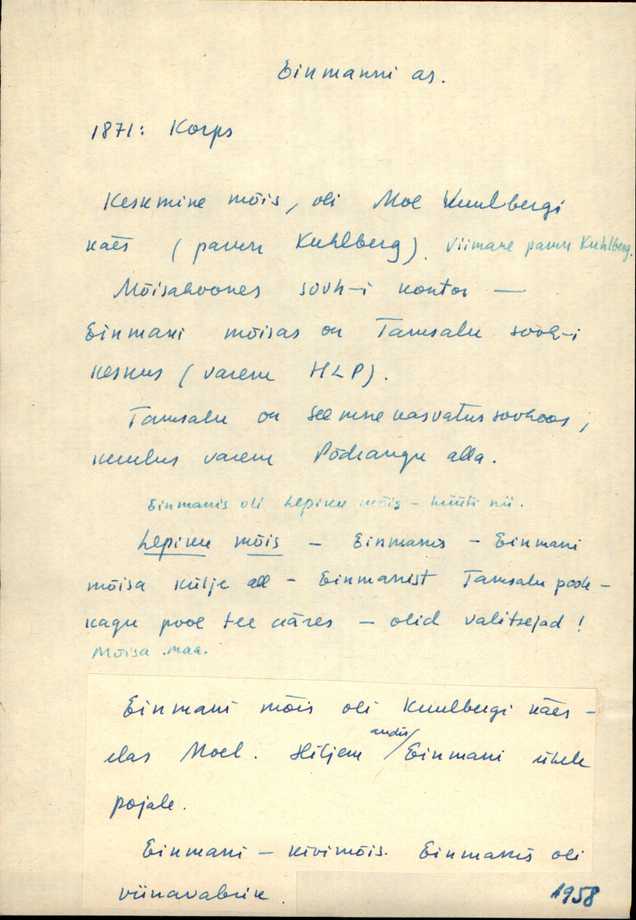 Einmanni as.
1871: Korps
Keskmine mõis, oli Moe Kuulbergi
käes (parun Kuhlberg). Viimane parun Kuhlberg.
Mõisahoones sovh-i kontor —
Einmani mõisas on Tamsalu sovh-i
keskus (varem HLP).
Tamsalu on seemnekasvatussovhoos,
kuulus varem Põdrangu alla.
Einmanis oli Lepiku mõis - hüüti nii.
Lepiku mõis - Einmanis - Einmani
mõisa külje all - Einmanist Tamsalu poole -
kagu pool tee ääres - olid valitsejad!
Mõisa maa.
Einmani mõis oli Kuulbergi käes -
elas Moel. Hiljem andis/ Einmani ühele
pojale.
Einmani - kivimõis. Einmanis oli
viinavabrik.
1958